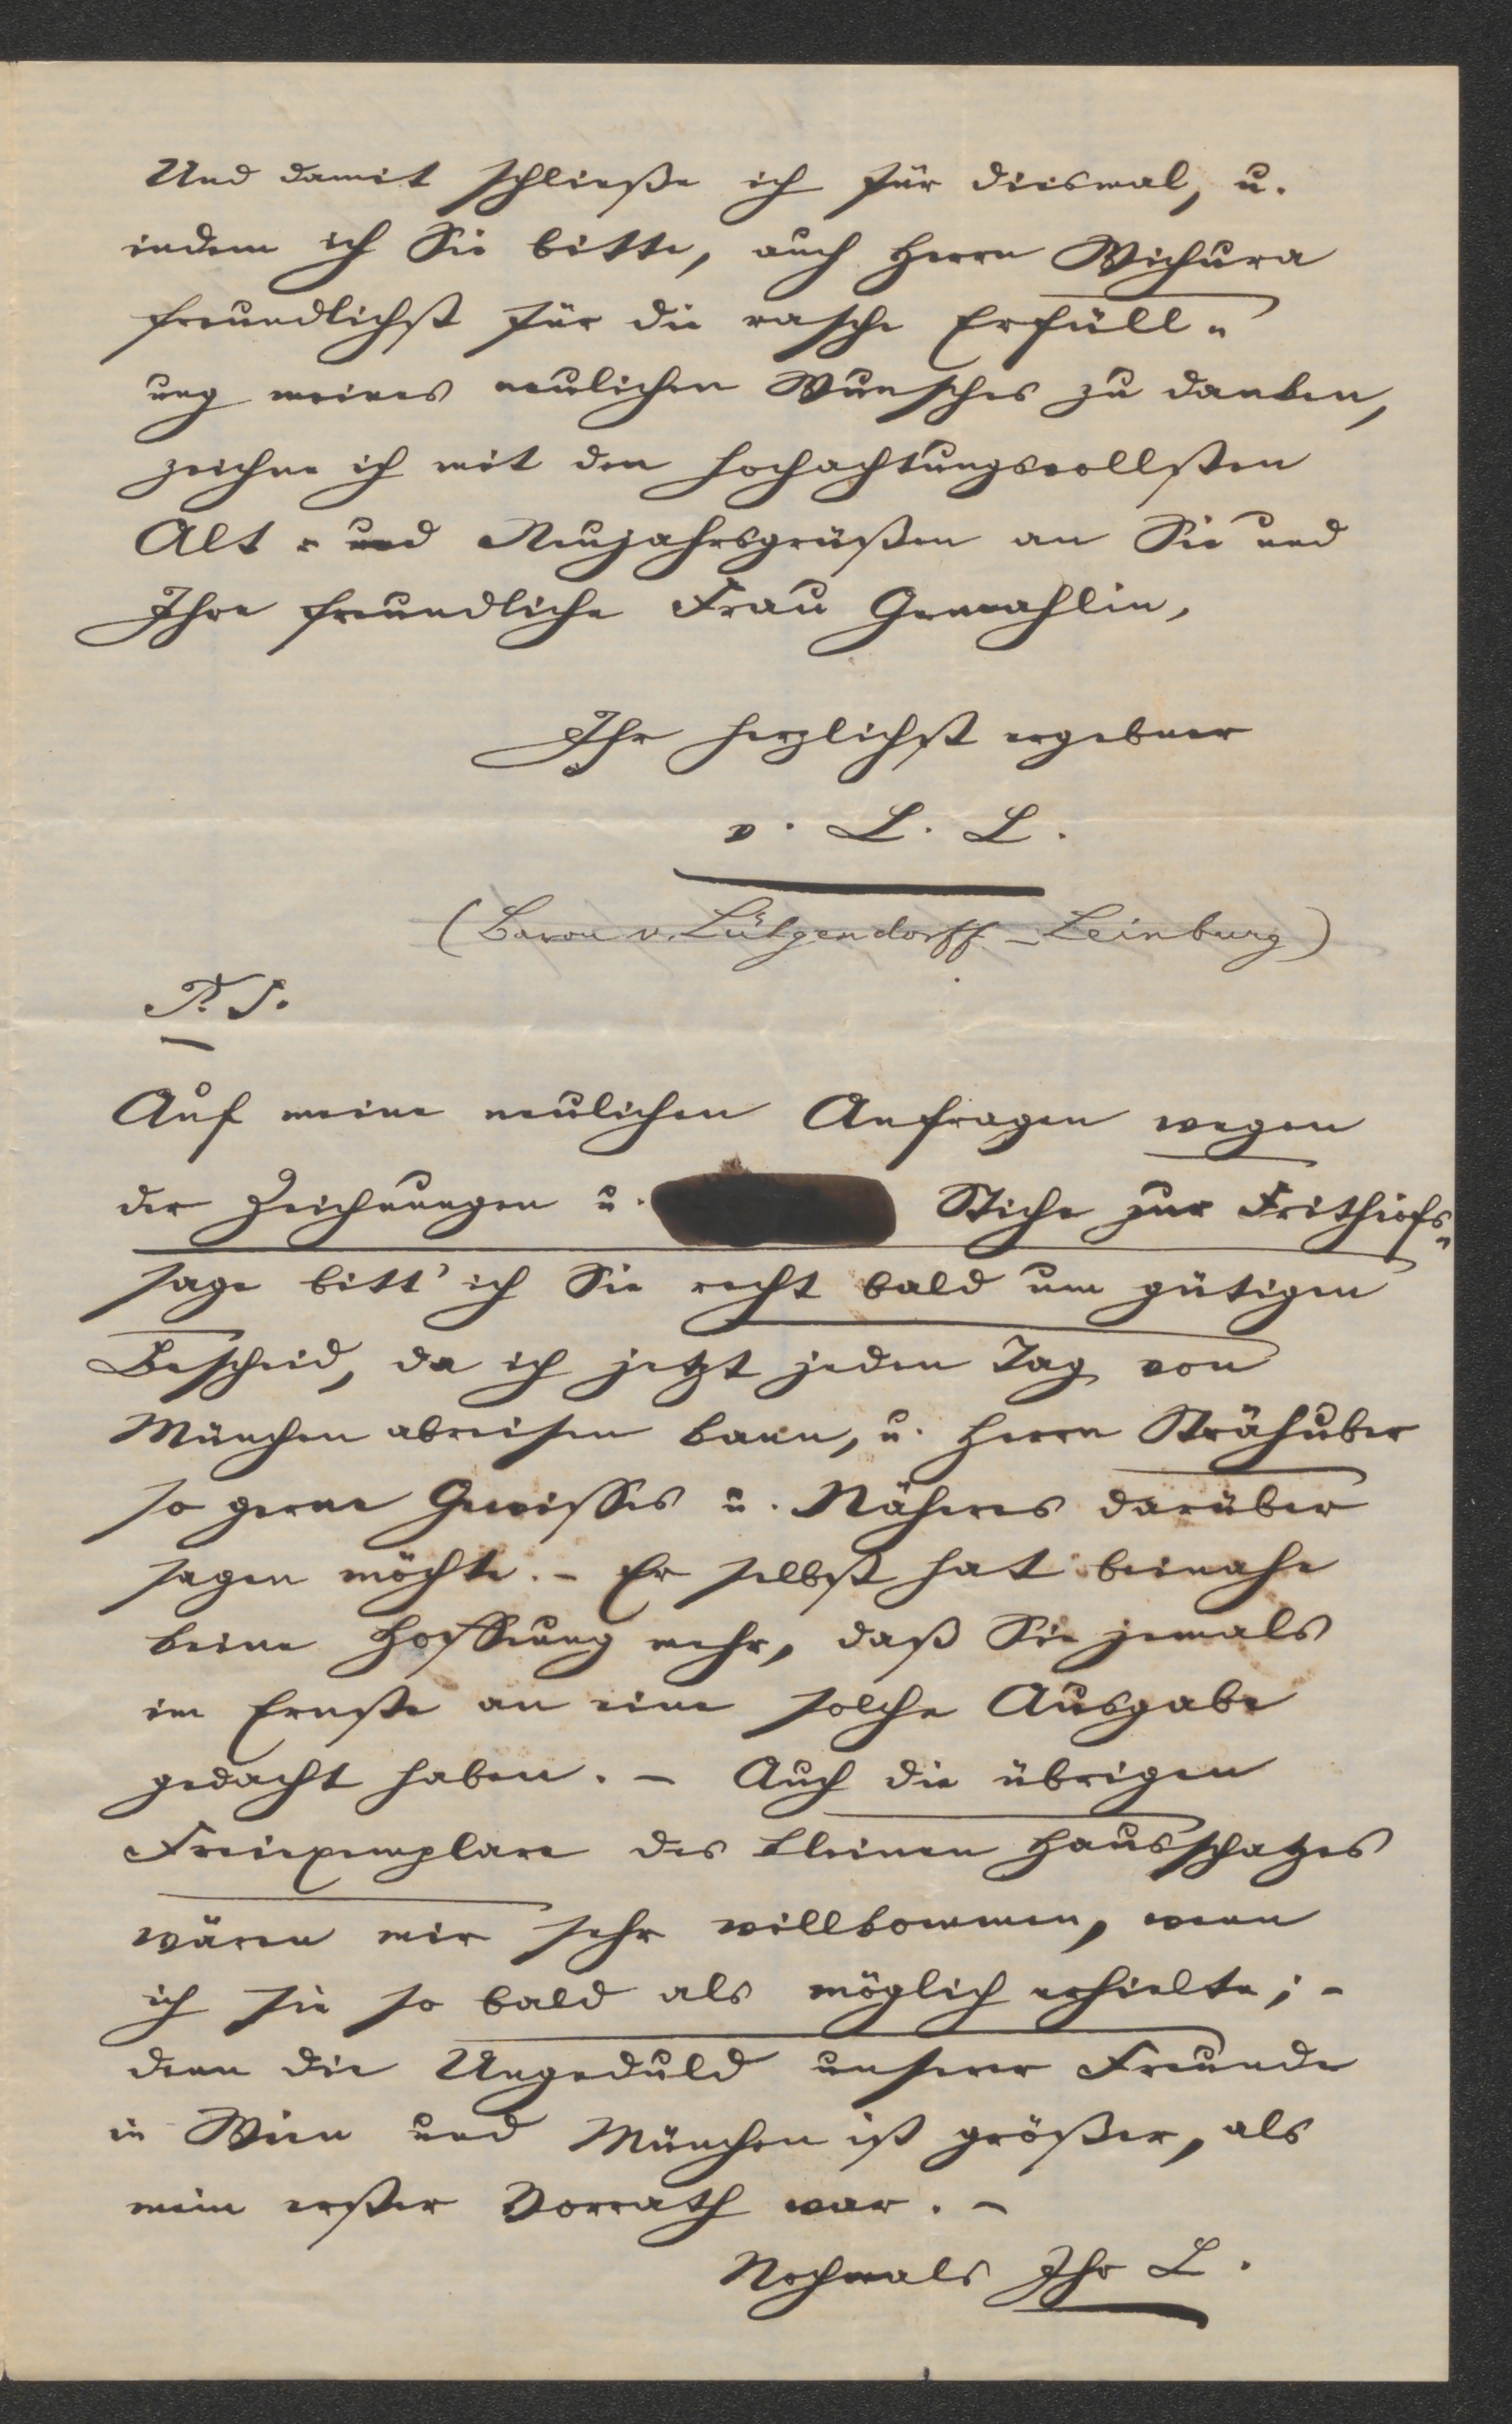 Und damit schließe ich für diesmal, u.
indem ich Sie bitte, auch Herrn Wichura
freundlichst für die rasche Erfüll-
ung meines neulichen Wunsches zu danken,
zeichne ich mit den hochachtungsvollsten
Alt- und Neujahrsgrüßen an Sie und
Ihre freundliche Frau Gemahlin,
Ihr herzlichst ergebner
v. L. L.
(Baron v. Lütgendorff-Leinburg)
P. S.
Auf meine neulichen Anfragen wegen
der Zeichnungen u. Stiche zur Frithiofs-
sage bitt' ich Sie recht bald um gütigen
Bescheid, da ich jetzt jeden Tag von
München abreisen kann, u. Herrn Strähuber
so gerne Gewisses u. Näheres darüber
sagen möchte. - Er selbst hat beinahe
keine Hoffnung mehr, daß Sie jemals
im Ernste an eine solche Ausgabe
gedacht haben. - Auch die übrigen
Freiexemplare des kleinen Hausschatzes
wären mir sehr willkommen, wenn
ich sie so bald als möglich erhielte; -
denn die Ungeduld unserer Freunde
in Wien und München ist größer, als
mein erster Vorrath war. -
Nochmals Ihr L.